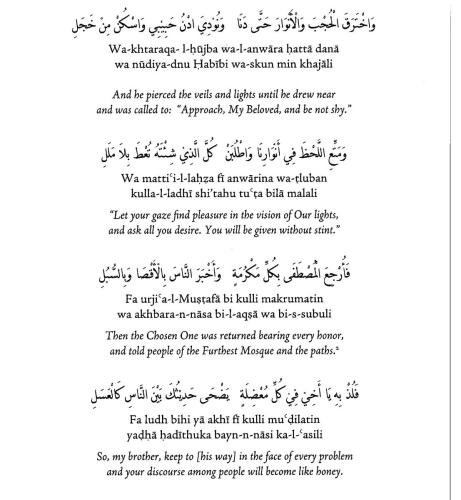 وَاخْتَرَقَ الْحُجْبَ وَالْأَنْوَارَ حَتَّى دَنَا وَنُودِيَ ادْنُ حَبِيبِي وَاسْكُنْ مِنْ خَجَلِ
Wa-khtaraqa- l-ḥūjba wa-l-anwāra ḥattā danā
wa nūdiya-dnu Ḥabībi wa-skun min khajāli
And he pierced the veils and lights until he drew near
and was called to: “Approach, My Beloved, and be not shy.”
وَمَتِّعِ اللَّحْظَ فِي أَنْوَارِنَا وَاطْلُبَنْ كُلَّ الَّذِيْ شِئْتَهُ تُعْطَ بِلَا مَلَلِ
Wa mattiʿi-l-laḥẓa fī anwārina wa-ṭluban
kulla-l-ladhī shi’tahu tuʿṭa bilā malali
“Let your gaze find pleasure in the vision of Our lights,
and ask all you desire. You will be given without stint.”
فَأُرْجِعَ الْمُصْطَفَى بِكُلِّ مَكْرُمَةٍ وَأَخْبَرَ النَّاسَ بِالْأَقْصَا وَبِالسُّبُلِ
Fa urjiʿa-l-Muṣṭafā bi kulli makrumatin
wa akhbara-n-nāsa bi-l-aqṣā wa bi-s-subuli
Then the Chosen One was returned bearing every honor,
and told people of the Furthest Mosque and the paths.²
فَلُذْ بِهِ يَا أَخِيْ فِيْ كُلِّ مُعْضِلَةٍ يَضْحَى حَدِيْثُكَ بَيْنَ النَّاسِ كَالْعَسَلِ
Fa ludh bihi yā akhī fī kulli muʿḍilatin
yaḍḥā ḥadīthuka bayn-n-nāsi ka-l-ʿasili
So, my brother, keep to [his way] in the face of every problem
and your discourse among people will become like honey.